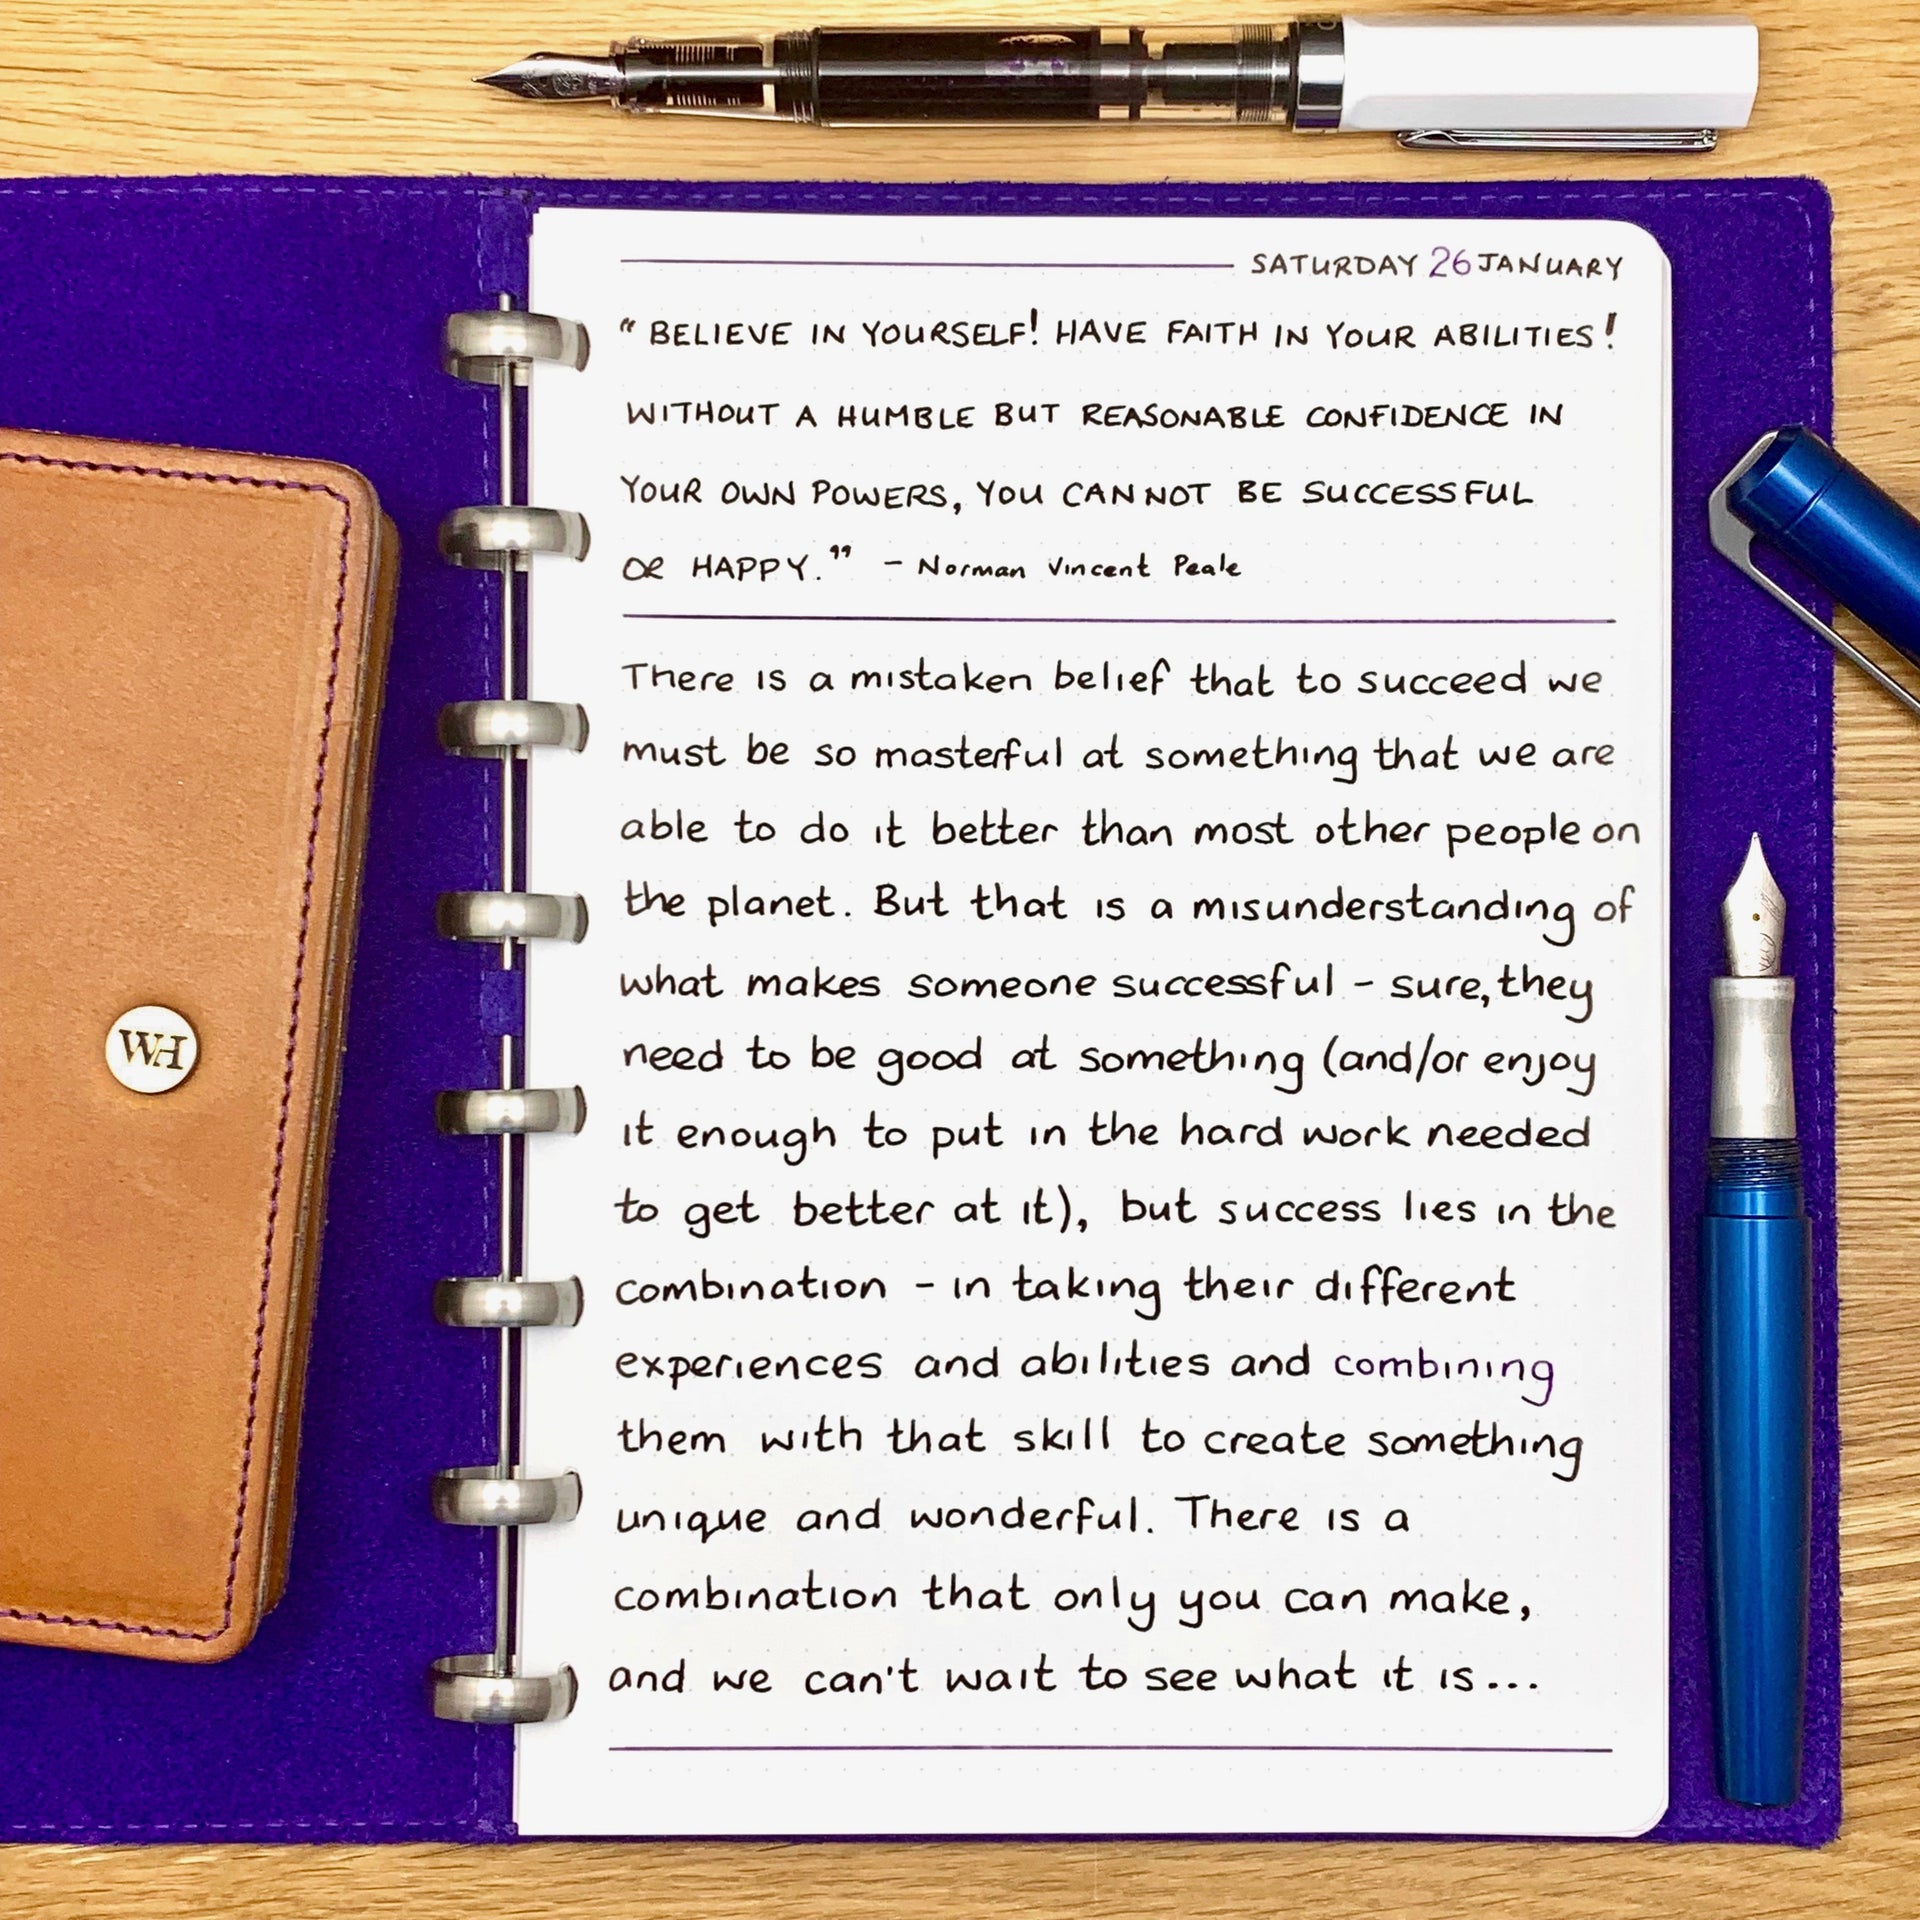 SATURDAY 26 JANUARY
“BELIEVE IN YOURSELF! HAVE FAITH IN YOUR ABILITIES!
WITHOUT A HUMBLE BUT REASONABLE CONFIDENCE IN
YOUR OWN POWERS, YOU CANNOT BE SUCCESSFUL
OR HAPPY.” - Norman Vincent Peale
There is a mistaken belief that to succeed we
must be so masterful at something that we are
able to do it better than most other people on
the planet. But that is a misunderstanding of
what makes someone successful - sure, they
need to be good at something (and/or enjoy
it enough to put in the hard work needed
to get better at it), but success lies in the
combination - in taking their different
experiences and abilities and combining
them with that skill to create something
unique and wonderful. There is a
combination that only you can make,
and we can't wait to see what it is...
WH